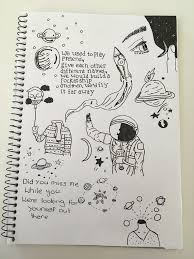 We used to play
pretend,
give each other
different names,
we would build a
rocketship
and then we'd fly
it far away
Did you miss me
while you
were looking for
yourself out
there